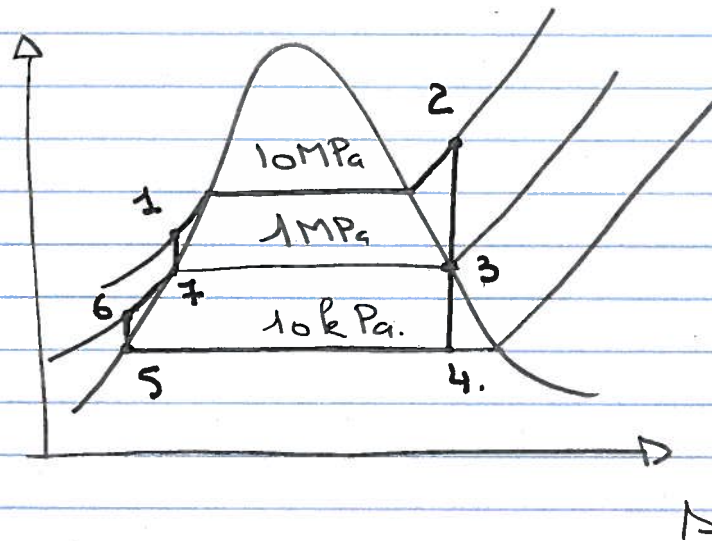 2
10MPa
1
1MPa
3
6
7
10kPa.
5
4.